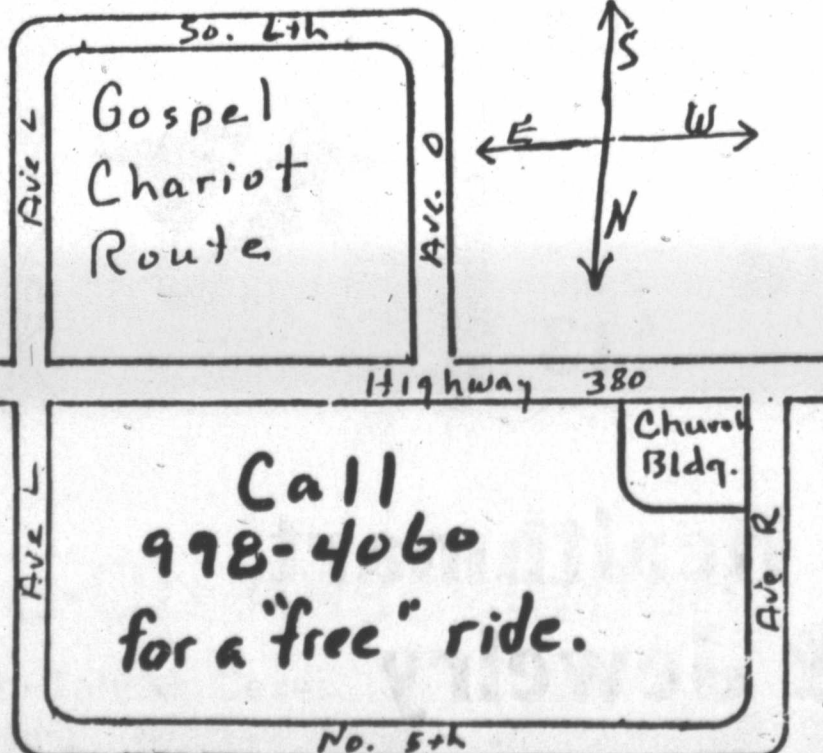 So. 6th
Ave L
Gospel
Chariot
Route
Ave. O
S
E W
N
Highway 380
Church
Bldg.
Call
998-4060
for a "free" ride.
Ave L
Ave R
No. 5th